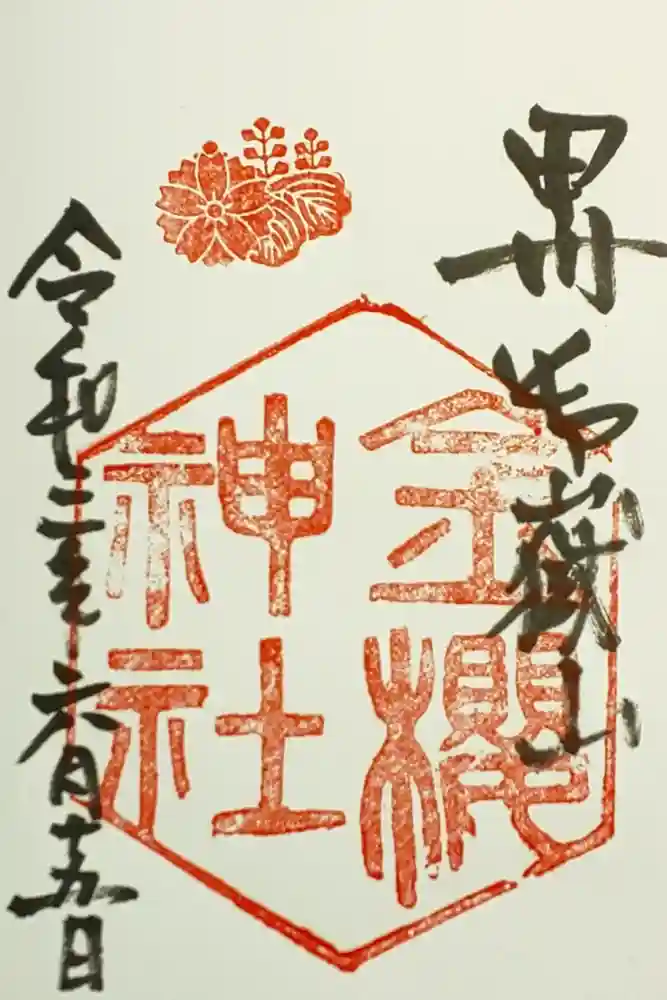 御嶽山
金櫻
神社
令和二年六月十九日